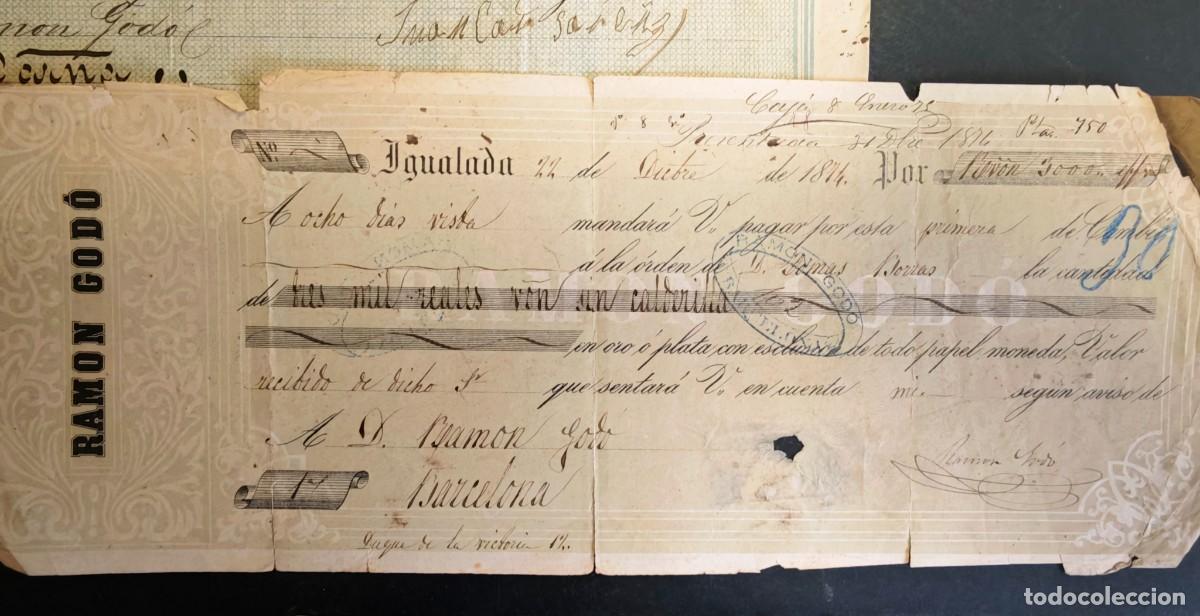 mon Godó
RAMON GODÓ
Caja 8 Enero 75
8
Ptas. 750
Nº 1 Igualada 22 de Dicbre de 1874. Por Rs von 3000
A ocho dias vista mandará V. pagar por esta primera de Cambio
á la órden de D. Tomas Borras la cantidad
30
de tres mil reales von sin calderilla
RAMON GODÓ
RAMON GODÓ
en oro ó plata con esclusion de todo papel moneda, Valor
recibido de dicho Sr que sentará V. en cuenta según aviso de
A D. Ramon Godó
Ramon Godó
17 Barcelona
Duque de la victoria 12.
todocoleccion